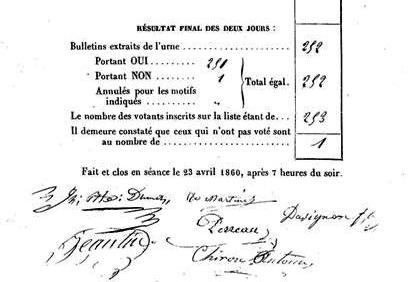 RÉSULTAT FINAL DES DEUX JOURS :
Bulletins extraits de l'urne 252
Portant OUI......... 251
Portant NON ........ 1
Total égal. 252
Annulés pour les motifs
indiqués ......... "
Le nombre des votants inscrits sur la liste étant de... 253
Il demeure constaté que ceux qui n'ont pas voté sont
au nombre de ........... 1
Fait et clos en séance le 23 avril 1860, après 7 heures du soir.
Davignon
Chiron Antoine